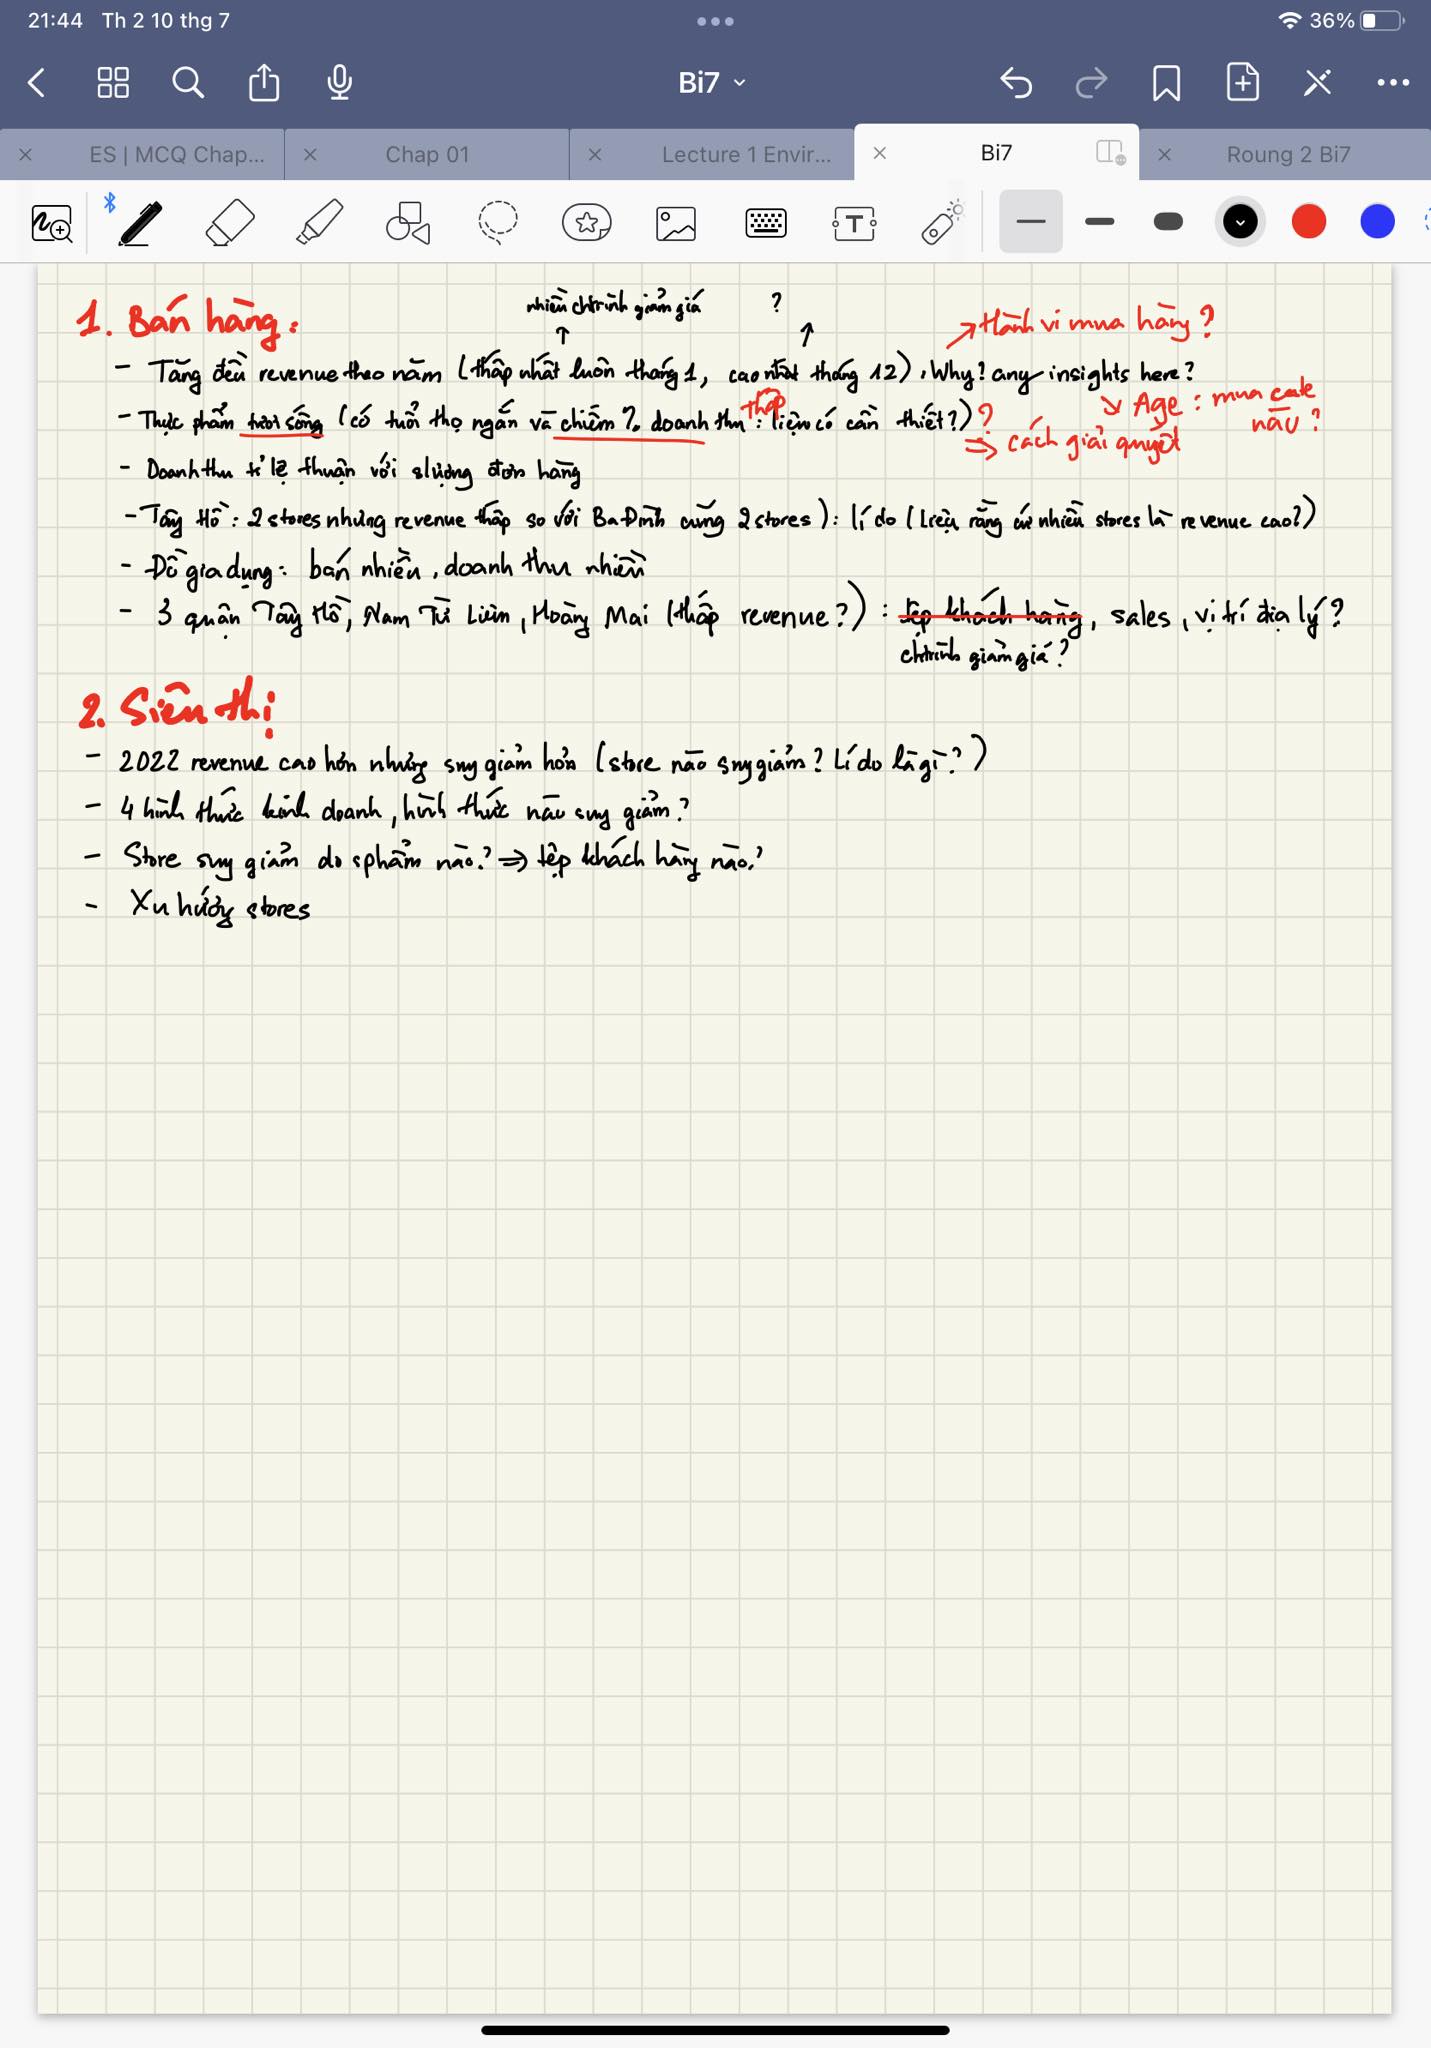 21:44 Th 2 10 thg 7
36%
Bi7
ES | MCQ Chap...
Chap 01
Lecture 1 Envir...
Bi7
Roung 2 Bi7
nhiều chtrình giảm giá ?
1. Bán hàng:
→ Hành vi mua hàng?
- Tăng đều revenue theo năm (thấp nhất luôn tháng 1, cao nhất tháng 12). Why? any insights here?
↘ Age: mua cate nào?
- Thực phẩm tươi sống (có tuổi thọ ngắn và chiếm % doanh thu thấp: liệu có cần thiết?)?
⇒ cách giải quyết
- Doanh thu tỉ lệ thuận với slượng đơn hàng
- Tây Hồ: 2 stores nhưng revenue thấp so với Ba Đình cũng 2 stores): lí do (Liệu rằng cứ nhiều stores là revenue cao?)
- Đồ gia dụng: bán nhiều, doanh thu nhiều
- 3 quận Tây Hồ, Nam Từ Liêm, Hoàng Mai (thấp revenue?): tệp khách hàng, sales, vị trí địa lý?
chtrình giảm giá?
2. Siêu thị
- 2022 revenue cao hơn nhưng suy giảm hơn (store nào suy giảm? Lí do là gì?)
- 4 hình thức kinh doanh, hình thức nào suy giảm?
- Store suy giảm do sphẩm nào? ⇒ tệp khách hàng nào?
- Xu hướng stores